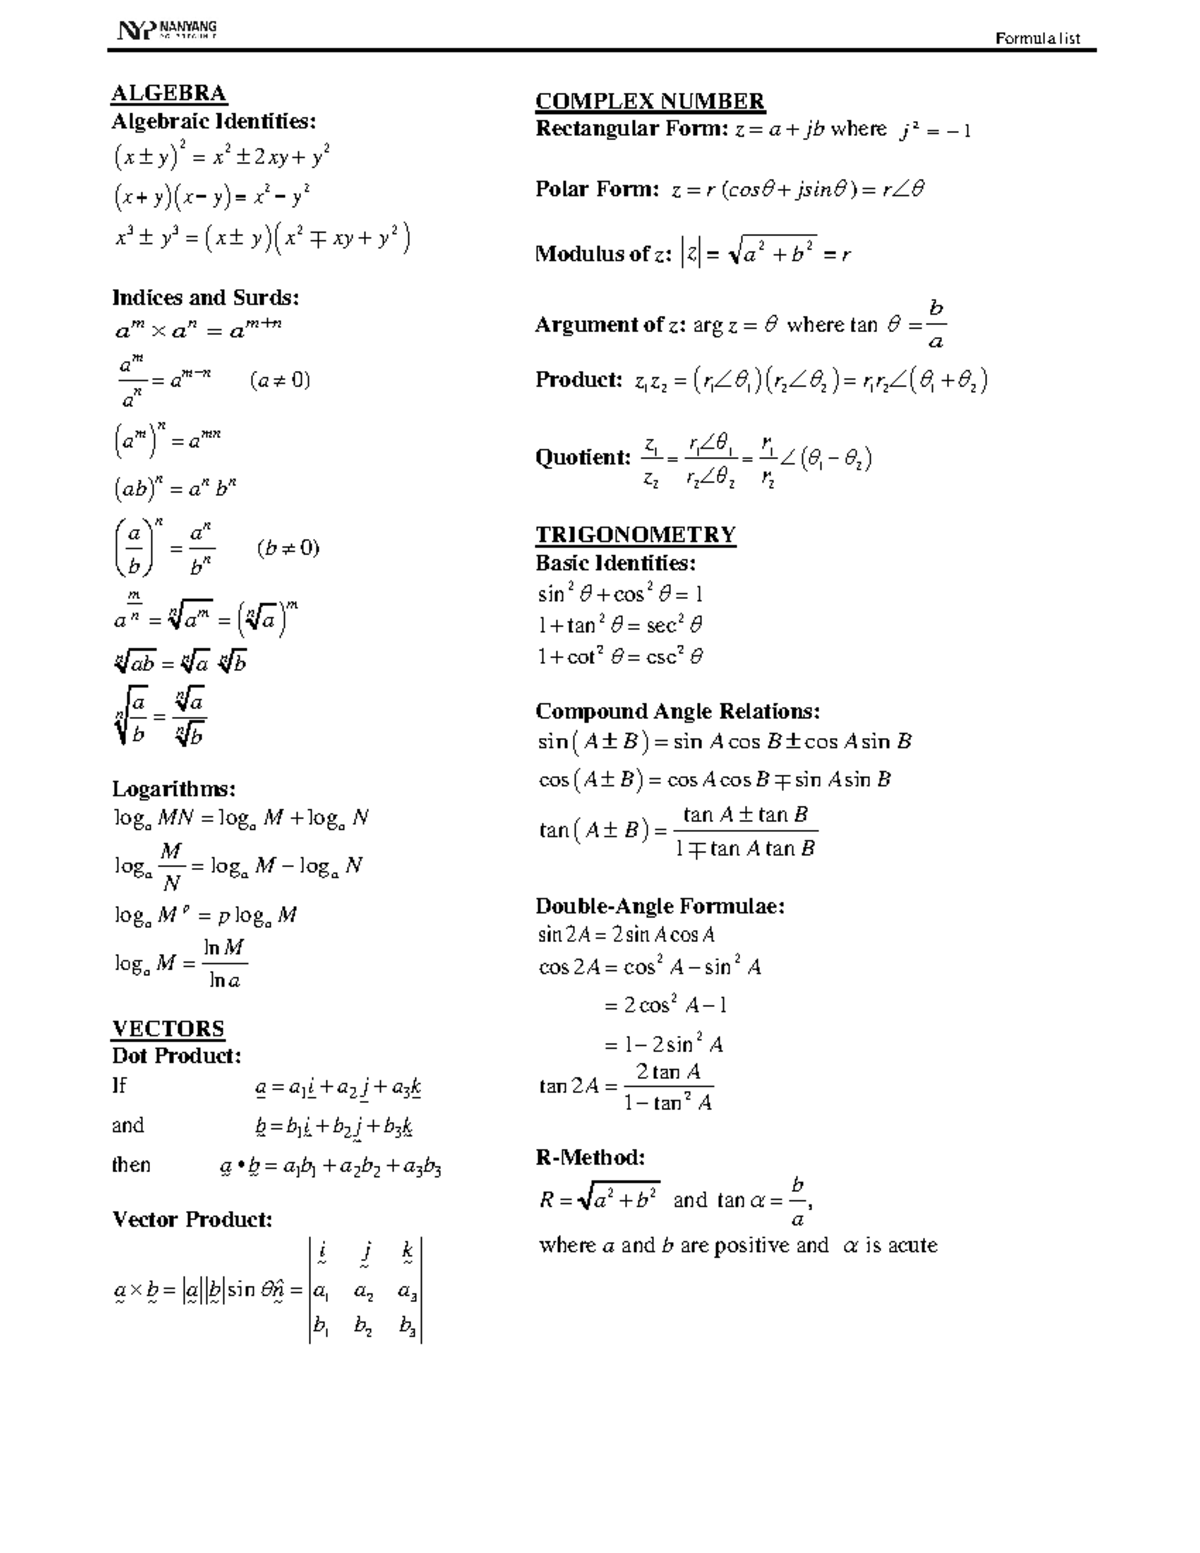 NYP NANYANG
Formula list
ALGEBRA
Algebraic Identities:
(x ± y)² = x² ± 2xy + y²
(x + y)(x − y) = x² − y²
x³ ± y³ = (x ± y)(x² ∓ xy + y²)
Indices and Surds:
a^m × a^n = a^(m+n)
a^m / a^n = a^(m−n) (a ≠ 0)
(a^m)^n = a^(mn)
(ab)^n = a^n b^n
(a/b)^n = a^n / b^n (b ≠ 0)
a^(m/n) = ⁿ√(a^m) = (ⁿ√a)^m
ⁿ√(ab) = ⁿ√a ⁿ√b
ⁿ√(a/b) = ⁿ√a / ⁿ√b
Logarithms:
logₐ MN = logₐ M + logₐ N
logₐ M/N = logₐ M − logₐ N
logₐ M^p = p logₐ M
logₐ M = ln M / ln a
VECTORS
Dot Product:
If a = a₁i + a₂j + a₃k
and b = b₁i + b₂j + b₃k
then a • b = a₁b₁ + a₂b₂ + a₃b₃
Vector Product:
a × b = |a||b| sin θn̂ = | i j k |
| a₁ a₂ a₃ |
| b₁ b₂ b₃ |
COMPLEX NUMBER
Rectangular Form: z = a + jb where j² = −1
Polar Form: z = r (cosθ + jsinθ) = r∠θ
Modulus of z: |z| = √(a² + b²) = r
Argument of z: arg z = θ where tan θ = b/a
Product: z₁z₂ = (r₁∠θ₁)(r₂∠θ₂) = r₁r₂∠(θ₁ + θ₂)
Quotient: z₁/z₂ = r₁∠θ₁ / r₂∠θ₂ = r₁/r₂ ∠(θ₁ − θ₂)
TRIGONOMETRY
Basic Identities:
sin² θ + cos² θ = 1
1 + tan² θ = sec² θ
1 + cot² θ = csc² θ
Compound Angle Relations:
sin(A ± B) = sin A cos B ± cos A sin B
cos(A ± B) = cos A cos B ∓ sin A sin B
tan(A ± B) = (tan A ± tan B) / (1 ∓ tan A tan B)
Double-Angle Formulae:
sin 2A = 2 sin A cos A
cos 2A = cos² A − sin² A
= 2 cos² A − 1
= 1 − 2 sin² A
tan 2A = 2 tan A / (1 − tan² A)
R-Method:
R = √(a² + b²) and tan α = b/a,
where a and b are positive and α is acute